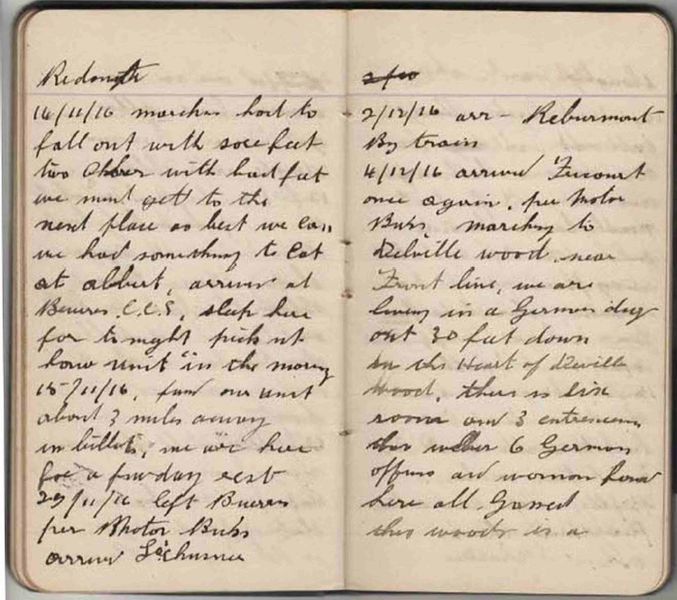 14/11/16 marches had to
fall out with sore feet
two others with bad feet
we must get to the
next place as best we can
we had something to Eat
at albert, arriver at
C.C.S, sleep here
for to night pick up
our unit in the morning
15/11/16, our unit
about 3 miles away
in billets, we are here
for a few day rest
29/11/16 left
per Motor Bus's
arriver
2/10
2/12/16 arr - Reburmont
By train
4/12/16 arriver Fricourt
once again, per Motor
Bus's, marching to
Delville wood, near
Front line, we are
living in a German dug
out 30 feet down
in the Heart of Deville
Wood, there is
room and 3 entrences
6 German
officers and woman found
here all Gassed
this woods is a